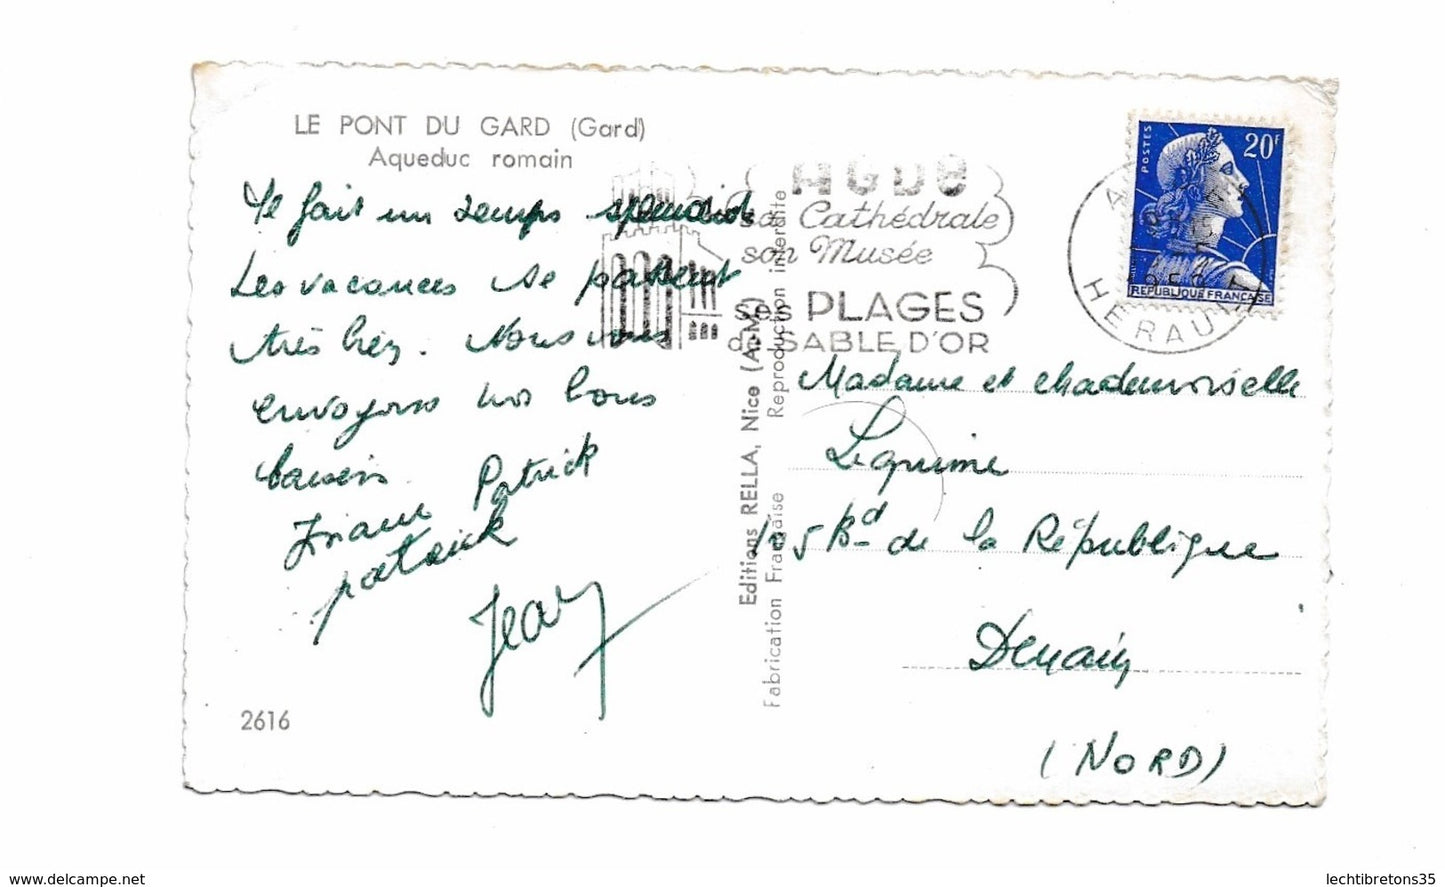 LE PONT DU GARD (Gard)
Aqueduc romain
Il fait un temps splendide
Les vacances se passent
très bien. Nous vous
envoyons nos bons
baisers
Patrick
patrick
Jean
2616
Editions RELLA, Nice (A.-M.)
Fabrication Française Reproduction interdite
AGDE
sa Cathédrale
son Musée
ses PLAGES
de SABLE D'OR
HERAULT
POSTES
20F
REPUBLIQUE FRANÇAISE
Madame et Mademoiselle
Lequime
105 Bd de la République
Denain
(NORD)
www.delcampe.net
lechtibretons35